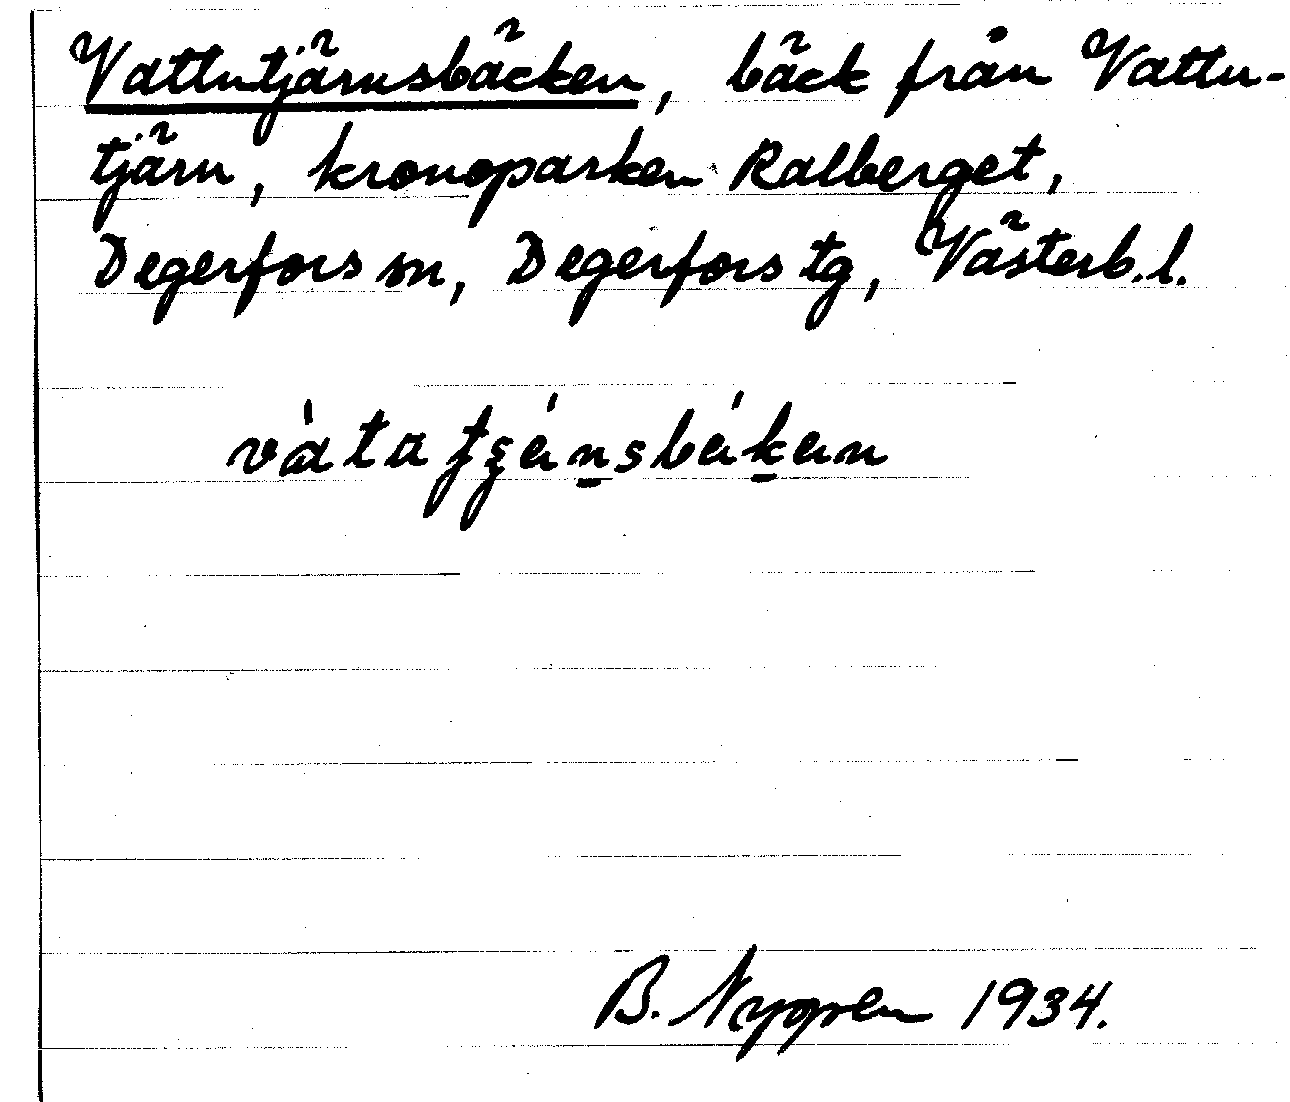 Vattutjärnsbäcken, bäck från Vattu-
tjärn, kronoparken Ralberget,
Degerfors sn, Degerfors tg, Västerb.l.
B. Nygren 1934.